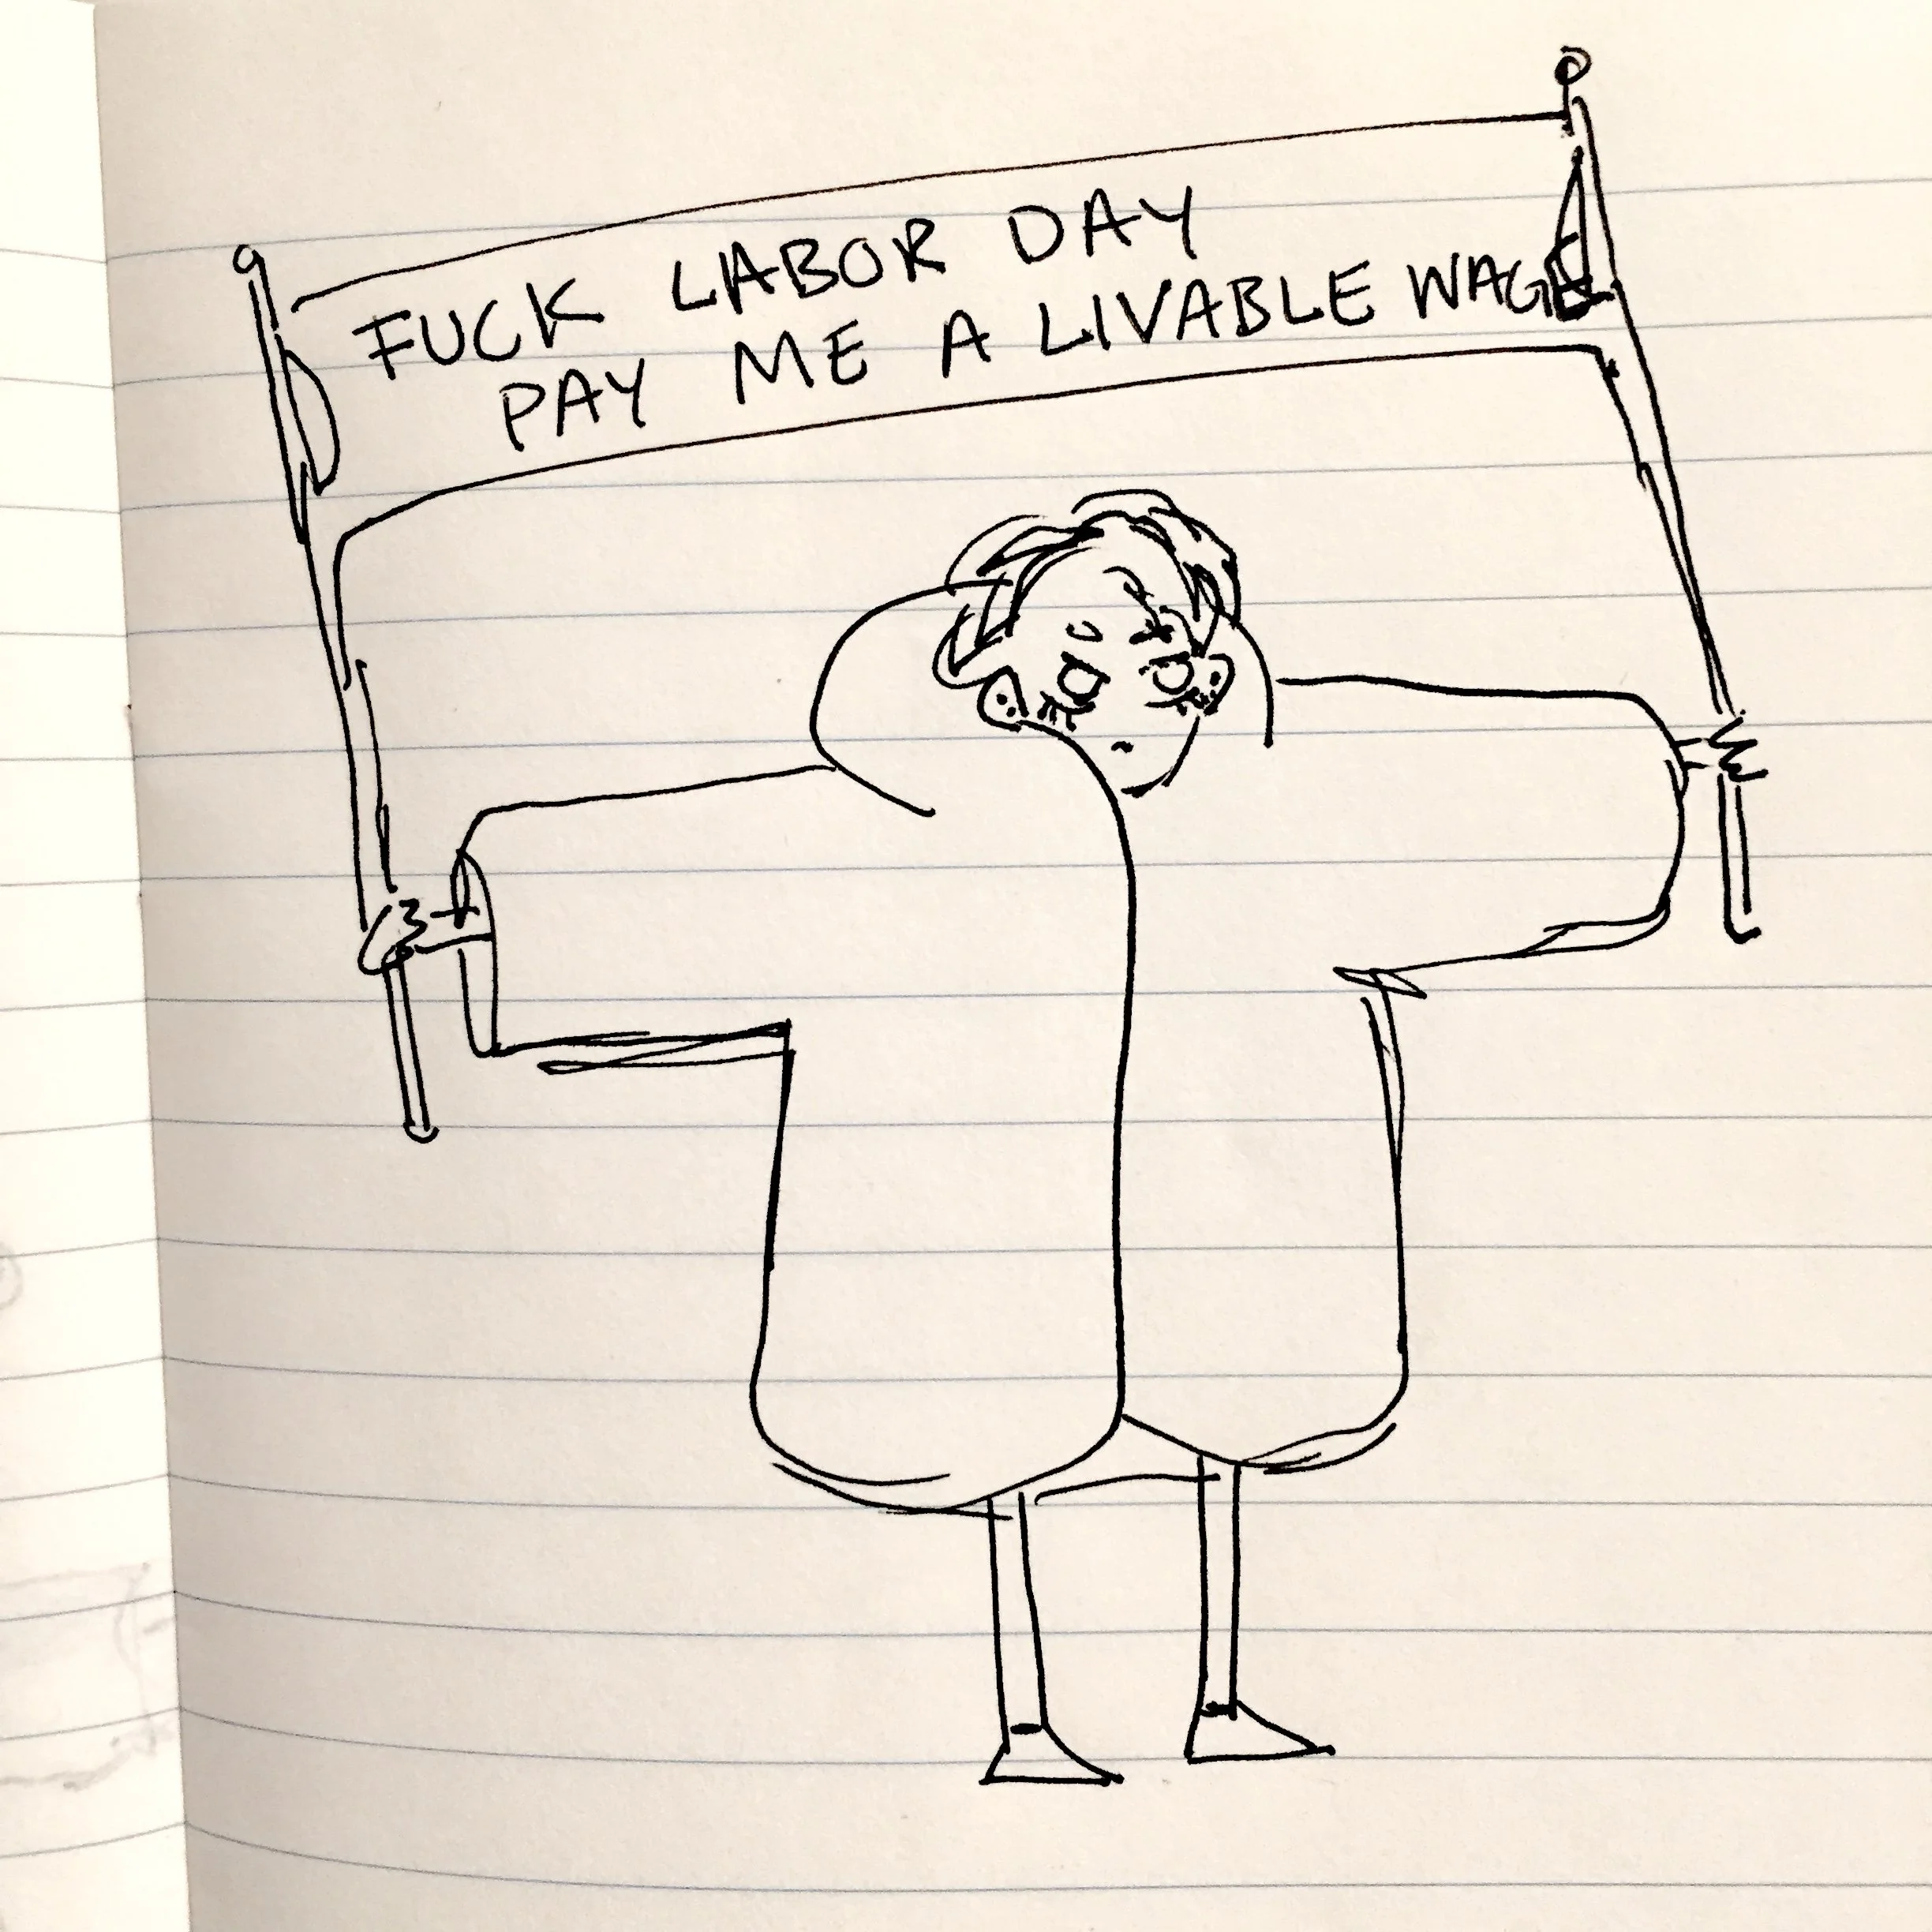 FUCK LABOR DAY
PAY ME A LIVABLE WAGE